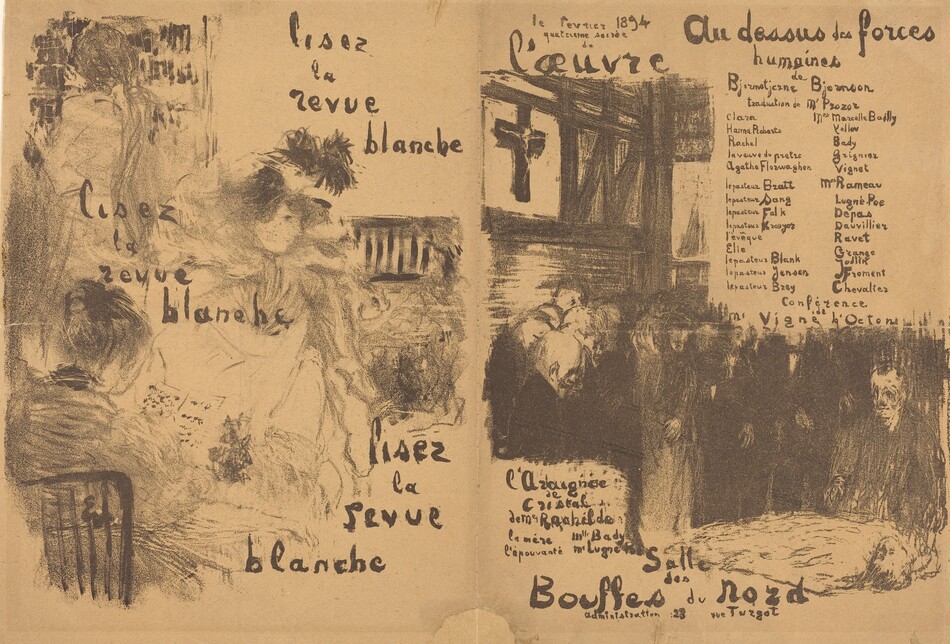 lisez
la
revue
blanche
lisez
la
revue
blanche
lisez
la
revue
blanche
le fevrier 1894
quatrieme soirée
de
l'œuvre
Au dessus des forces
humaines
de
Bjornstjerne Bjornson
traduction de Mr Prozor
Clara Mme Marcelle Bailly
Hanna Roberts Yellov
Rachel Bady
la veuve du pretre Grignier
Agathe Florwaghen Vignot
le pasteur Bratt Mrs Rameau
le pasteur Sang Lugné-Poe
le pasteur Falk Depas
le pasteur Kroeyer Dauvillier
l'évêque Ravet
Elie Grange
le pasteur Blank Jollie
le pasteur Jensen J Froment
le pasteur Brey Chevalier
Conférence
de
Mr Vigné d'Octon
l'Araignée
de
Cristal
de Me Rachilde
la mère Mlle Bady
l'épouvanté Mr Lugné
Salle
des
Bouffes du Nord
administration : 23 rue Turgot